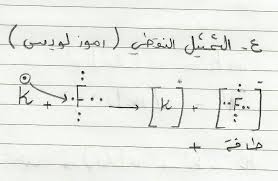 ع- التمثيل النقطي (رموز لويس)
K + F → [K]⁺ + [F]⁻
+ طاقة